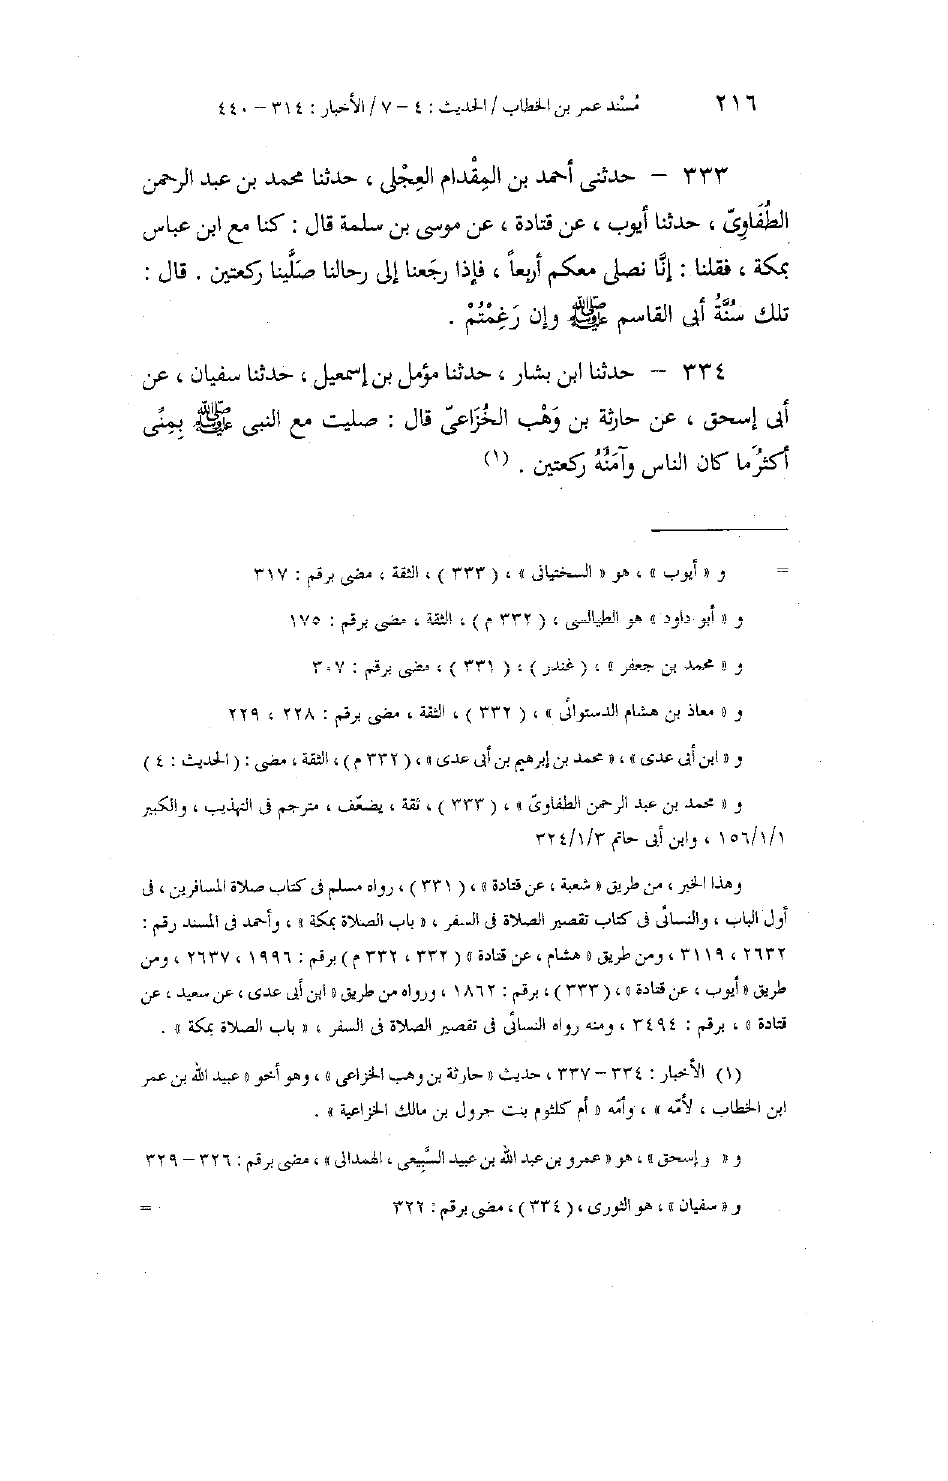 ٢١٦ مُسْند عمر بن الخطاب / الحديث : ٤ – ٧ / الأخبار : ٣١٤ – ٤٤٠
٣٣٣ – حدثنى أحمد بن المِقْدام العِجْلى ، حدثنا محمد بن عبد الرحمن
الطُفَاوِىّ ، حدثنا أيوب ، عن قتادة ، عن موسى بن سلمة قال : كنا مع ابن عباس
بمكة ، فقلنا : إنَّا نصلى معكم أربعاً ، فإذا رجَعنا إلى رحالنا صَلَّينا ركعتين . قال :
تلك سُنَّةُ أبى القاسم ﷺ وإن رَغِمْتُمْ .
٣٣٤ – حدثنا ابن بشار ، حدثنا مؤمل بن إسمعيل ، حدثنا سفيان ، عن
أبى إسحق ، عن حارثة بن وَهْب الخُزَاعىّ قال : صليت مع النبى ﷺ بِمِنًى
أكثرُ ما كان الناس وآمَنُهُ ركعتين . (١)
= و « أيوب » ، هو « السختيانى » ، ( ٣٣٣ ) ، الثقة ، مضى برقم : ٣١٧
و « أبو داود » هو الطيالسى ، ( ٣٣٢ م ) ، الثقة ، مضى برقم : ١٧٥
و « محمد بن جعفر » ، ( غندر ) ، ( ٣٣١ ) ، مضى برقم : ٣٠٧
و « معاذ بن هشام الدستوائى » ، ( ٣٣٢ ) ، الثقة ، مضى برقم : ٢٢٨ ، ٢٢٩
و « ابن أبى عدى » ، « محمد بن إبرهيم بن أبى عدى » ، ( ٣٣٢ م ) ، الثقة ، مضى : ( الحديث : ٤ )
و « محمد بن عبد الرحمن الطفاوىّ » ، ( ٣٣٣ ) ، ثقة ، يضعّف ، مترجم فى التهذيب ، والكبير
١٥٦/١/١ ، وابن أبى حاتم ٣٢٤/١/٣
وهذا الخبر ، من طريق « شعبة ، عن قتادة » ، ( ٣٣١ ) ، رواه مسلم فى كتاب صلاة المسافرين ، فى
أول الباب ، والنسائى فى كتاب تقصير الصلاة فى السفر ، « باب الصلاة بمكة » ، وأحمد فى المسند رقم :
٢٦٣٢ ، ٣١١٩ ، ومن طريق « هشام ، عن قتادة » ( ٣٣٢ ، ٣٣٢ م ) برقم : ١٩٩٦ ، ٢٦٣٧ ، ومن
طريق « أيوب ، عن قتادة » ، ( ٣٣٣ ) ، برقم : ١٨٦٢ ، ورواه من طريق « ابن أبى عدى ، عن سعيد ، عن
قتادة » ، برقم : ٣٤٩٤ ، ومنه رواه النسائى فى تقصير الصلاة فى السفر ، « باب الصلاة بمكة » .
(١) الأخبار : ٣٣٤ – ٣٣٧ ، حديث « حارثة بن وهب الخزاعى » ، وهو أخو « عبيد الله بن عمر
ابن الخطاب ، لأمّه » ، وأمّه « أم كلثوم بنت جرول بن مالك الخزاعية » .
و « وإسحق » ، هو « عمرو بن عبد الله بن عبيد السَّبِيعى ، الهمدانى » ، مضى برقم : ٣٢٦ – ٣٢٩
و « سفيان » ، هو الثورى ، ( ٣٣٤ ) ، مضى برقم : ٣٢٦ =